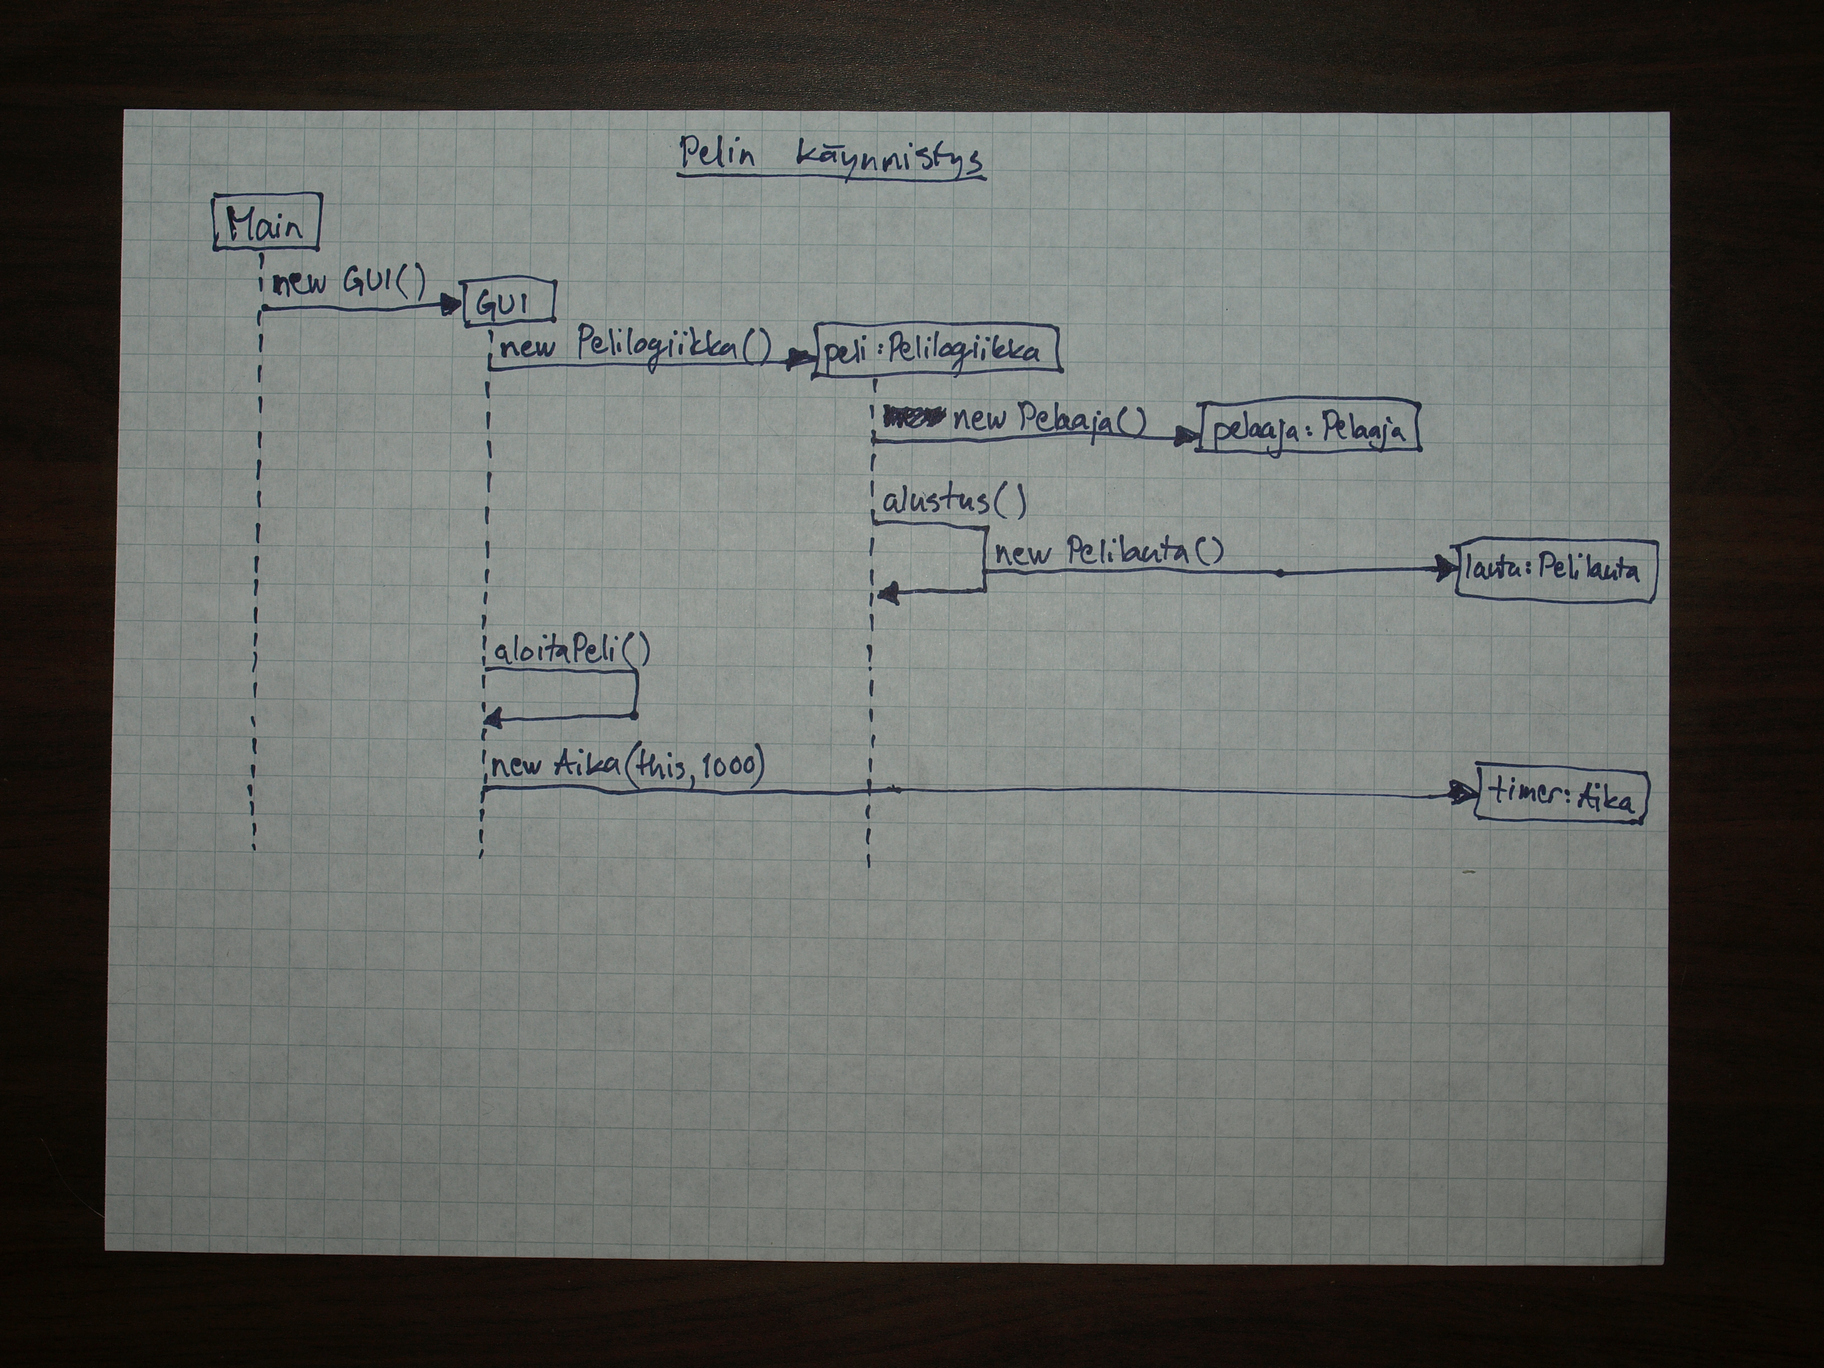 Pelin käynnistys
Main
new GUI()
GUI
new Pelilogiikka()
peli:Pelilogiikka
new Pelaaja()
pelaaja:Pelaaja
alustus()
new Pelilauta()
lauta:Pelilauta
aloitaPeli()
new Aika(this,1000)
timer:Aika